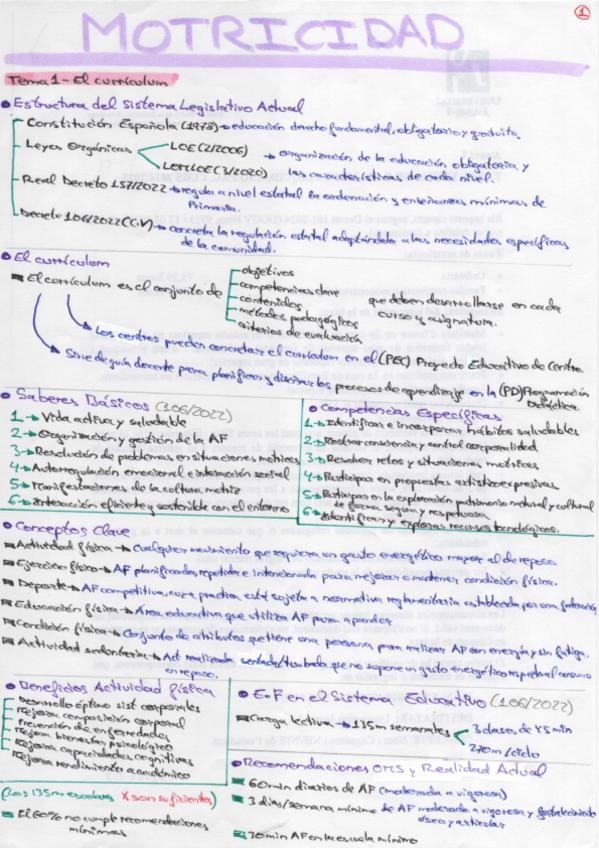 1
MOTRICIDAD
Tema 1 - El currículum
Estructura del Sistema Legislativo Actual
Constitución Española (1978) → educación derecho fundamental, obligatorio y gratuito.
Leyes Orgánicas
LOE (2/2006)
LOMLOE (3/2020)
→ organización de la educación obligatoria y
las características de cada nivel.
Real Decreto 157/2022 → regula a nivel estatal la ordenación y enseñanzas mínimas de
Primaria.
Decreto 106/2022 (CV) → concreta la regulación estatal adaptándolo a las necesidades específicas
de la comunidad.
El currículum
El currículum es el conjunto de
objetivos
competencias clave
contenidos
métodos pedagógicos
criterios de evaluación
que deben desarrollarse en cada
curso y asignatura.
Los centros pueden concretar el currículum en el (PEC) Proyecto Educativo de Centro.
Sirve de guía docente para planificar y diseñar los procesos de aprendizaje en la (PD) Programación
Didáctica.
Saberes Básicos (106/2022)
1 → Vida activa y saludable
2 → Organización y gestión de la AF
3 → Resolución de problemas en situaciones motrices
4 → Autorregulación emocional e interacción social
5 → Manifestaciones de la cultura motriz
6 → Interacción eficiente y sostenible con el entorno
Competencias Específicas
1 → Identificar e incorporar hábitos saludables
2 → Mostrar consciencia y control corporalidad
3 → Resolver retos y situaciones motrices
4 → Participar en propuestas artístico expresivas
5 → Participar en la exploración patrimonio natural y cultural
de forma segura y respetuosa
6 → Identificar y explorar recursos tecnológicos.
Conceptos Clave
Actividad física → Cualquier movimiento que requiera un gasto energético mayor al de reposo.
Ejercicio físico → AF planificada, repetida e intencionada para mejorar o mantener condición física.
Deporte → AF competitiva, cuya práctica está sujeta a normativa reglamentaria establecida por una federación
Educación física → Área educativa que utiliza AF para aprender
Condición física → Conjunto de atributos que tiene una persona para realizar AF con energía y sin fatiga.
Actividad sedentaria → Act realizada sentado/tumbado que no supone un gasto energético respecto al consumo
en reposo.
Beneficios Actividad física
Desarrollo óptimo sist corporales
Mejora composición corporal
Prevención de enfermedades
Mejora bienestar psicológico
Mejora capacidades cognitivas
Mejora rendimiento académico
(Los 135m escolares X son suficientes)
El 60% no cumple recomendaciones
mínimas
E.F en el Sistema Educativo (106/2022)
Carga lectiva → 135m semanales
3 clases de 45 min
270m/ciclo
Recomendaciones OMS y Realidad Actual
60min diarios de AF (moderada a vigorosa)
3 días/semana mínimo de AF moderada a vigorosa y fortalecimiento
óseo y articular
30min AF en la escuela mínimo